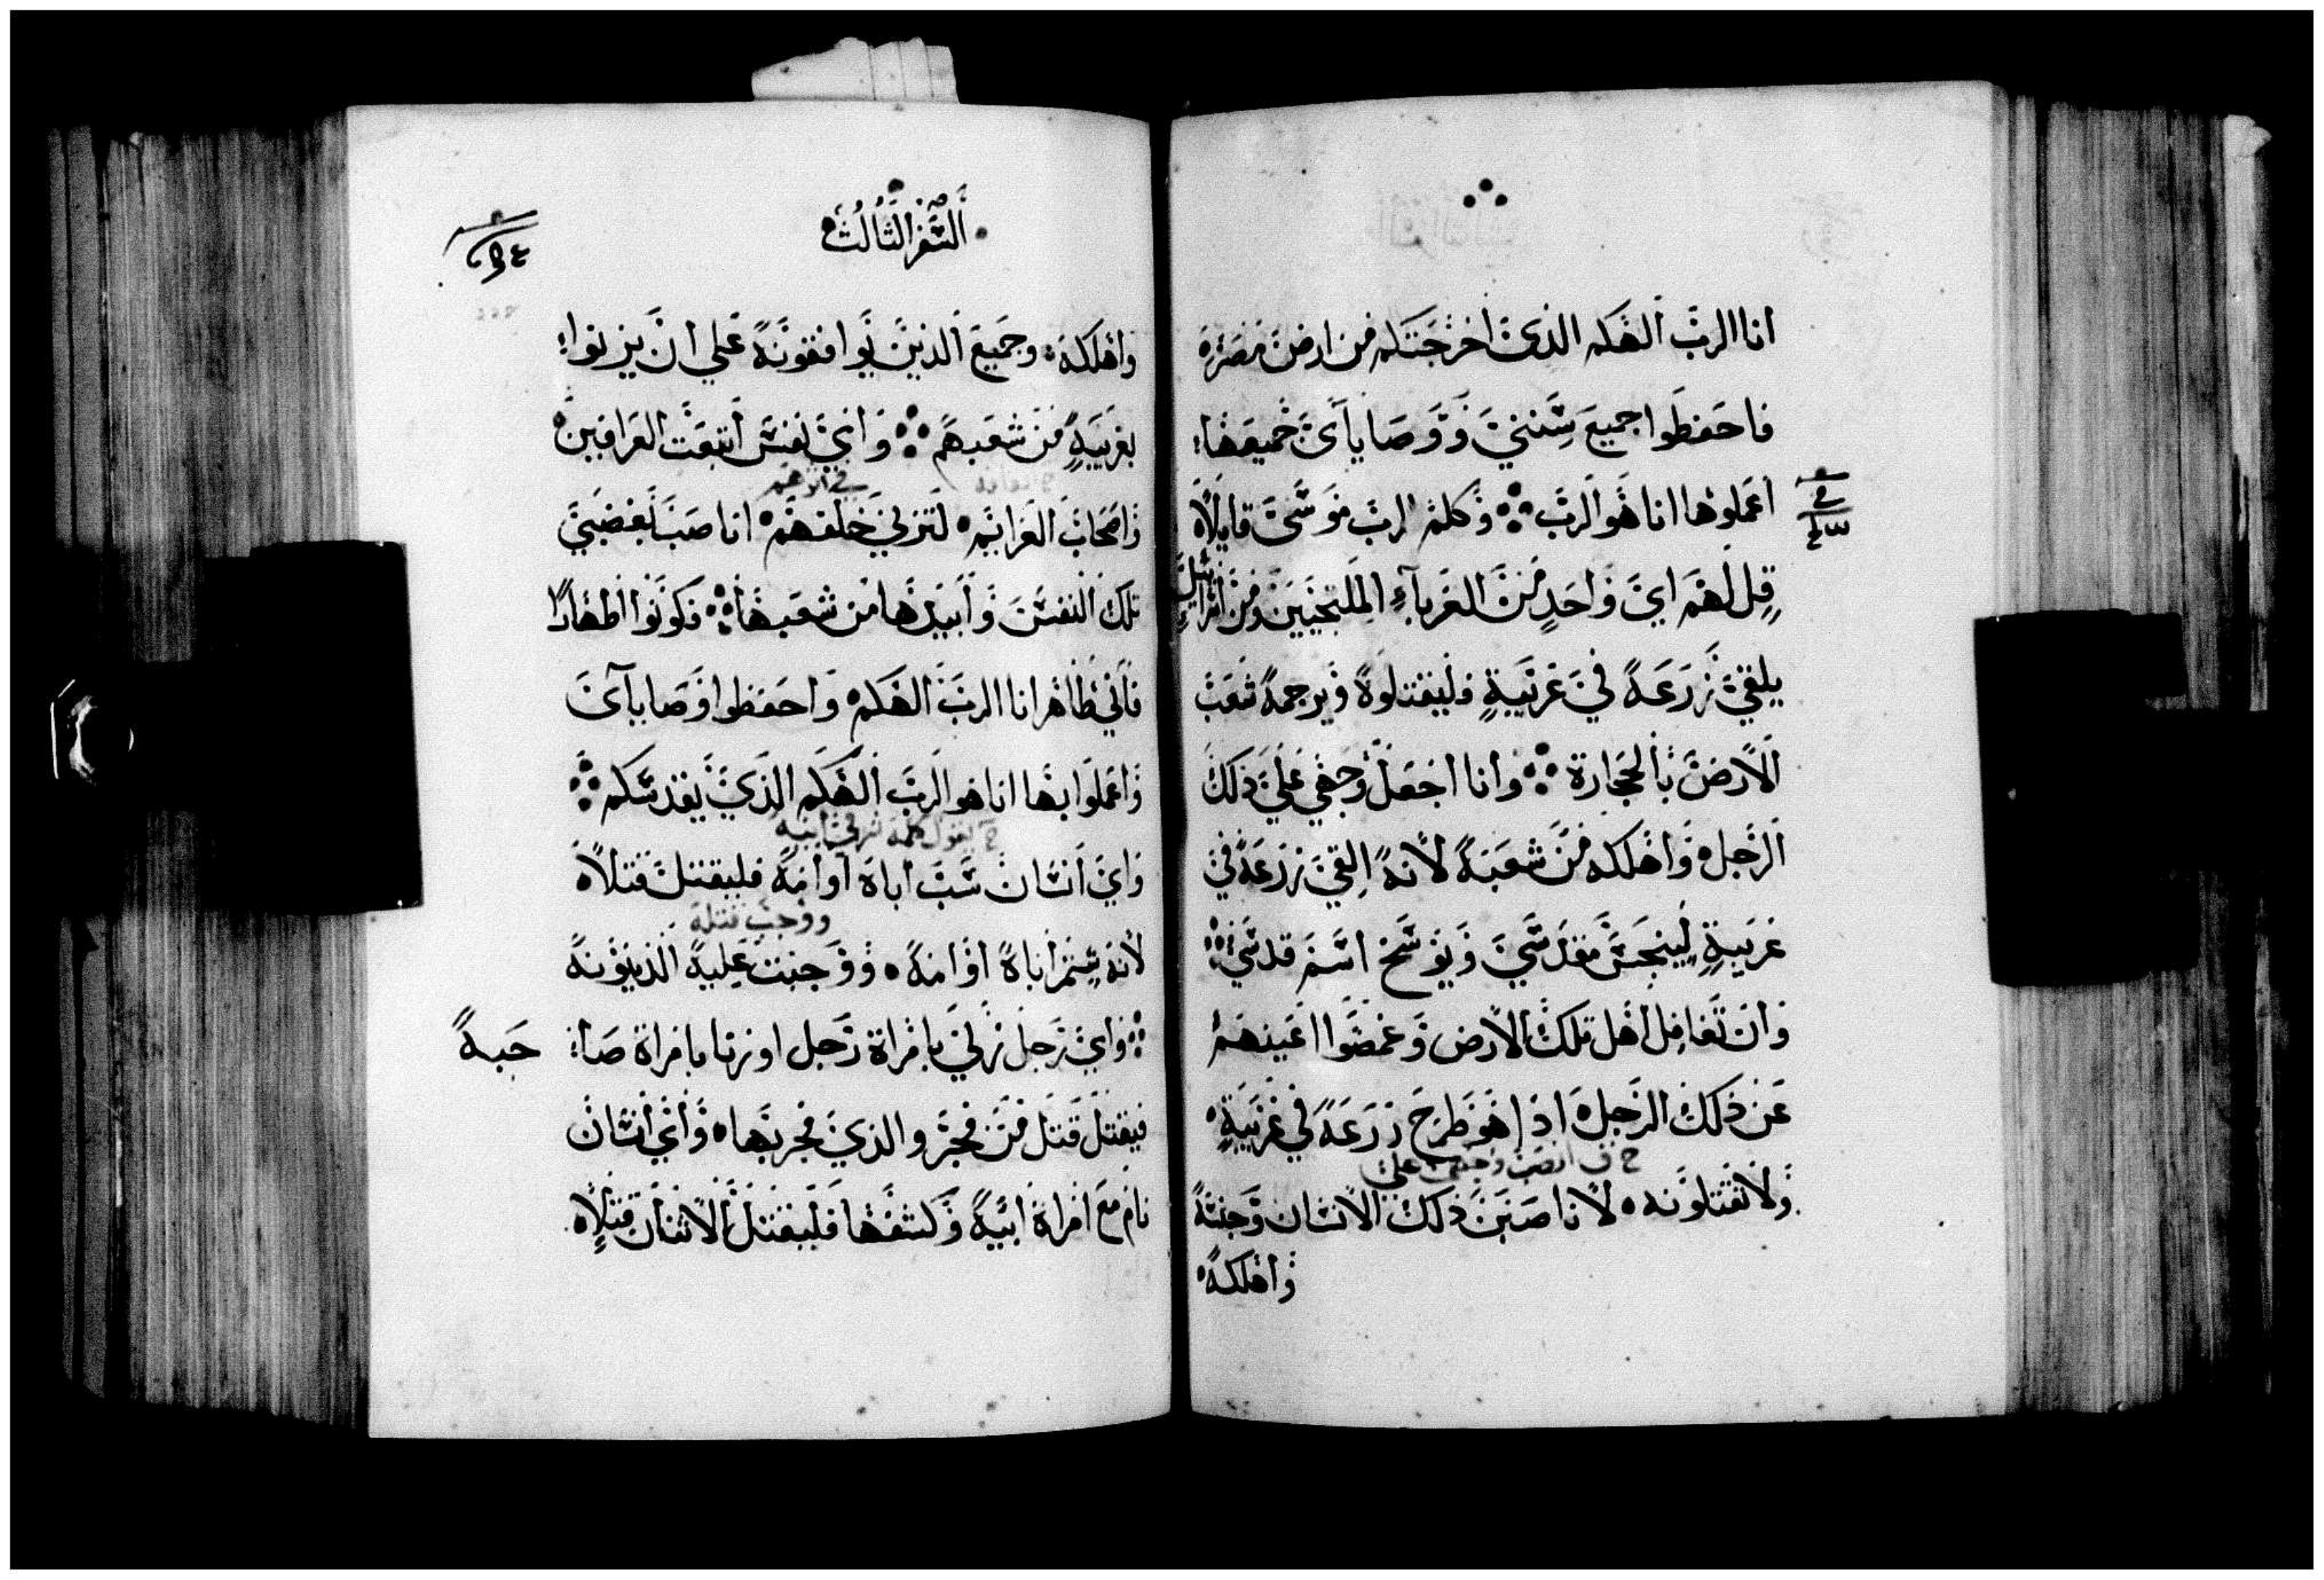 انا الرب الهكم الذي اخرجتكم من ارض مصر
فاحفظوا جميع سنني ووصاياي جميعها
اعملوها انا هو الرب وكلم الرب موسي قايلاً
قل لهم اي واحد من الغرباء الملتجيين ومن اسرائيل
يلقي زرعه في غريبة فليقتلوه ويرجمه شعب
الارض بالحجارة وانا اجعل وجهي علي ذلك
الرجل واهلكه من شعبه لانه القي زرعه في
غريبة لينجس مقدسي ويوسخ اسم قدسي
وان تغافل اهل تلك الارض وغمضوا اعينهم
عن ذلك الرجل اذا هو طرح زرعه في غريبة
ولا تقتلونه لانا صبن ذلك الانسان وجنسه
واهلكه
السفر الثالث
واهلكه وجميع الذين يوافقونه علي ان يزنوا
بغريبة من شعبهم واي نفس اتبعت العرافين
في اثرهم
واصحاب العزايم لتزني خلفهم انا صب بغضبي
تلك النفس وابيدها من شعبها فكونوا اطهارا
فاني طاهر انا الرب الهكم واحفظوا وصاياي
واعملوا بها انا هو الرب الهكم الذي يقدسكم
يقول كلمة
واي انسان سب اباه او امه فليقتل قتلاً
ووجب قتله
لانه شتم اباه او امه ووجبت عليه الدينونة
واي رجل زني بامراة رجل او زنا بامراة صا
حبه
فيقتل قتل من فجر والذي فجر بها واي انسان
نام مع امراة ابيه وكشفها فليقتل الاثنان قتلاً